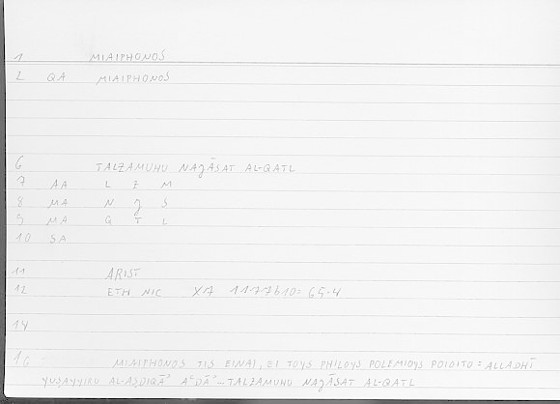 1 MIAIPHONOS
2 QA MIAIPHONOS
6 TALZAMUHU NAǧĀSAT AL-QATL
7 AA L Z M
8 MA N ǧ S
9 MA Q T L
10 SA
11 ARIST
12 ETH NIC X7 1177b10=65-4
14
16 MIAIPHONOS TIS EINAI, EI TOYS PHILOYS POLEMIOYS POIOITO = ALLADHĪ
YUṢAYYIRU AL-AṢDIQĀʾ AʿDĀʾ... TALZAMUHU NAǧĀSAT AL-QATL